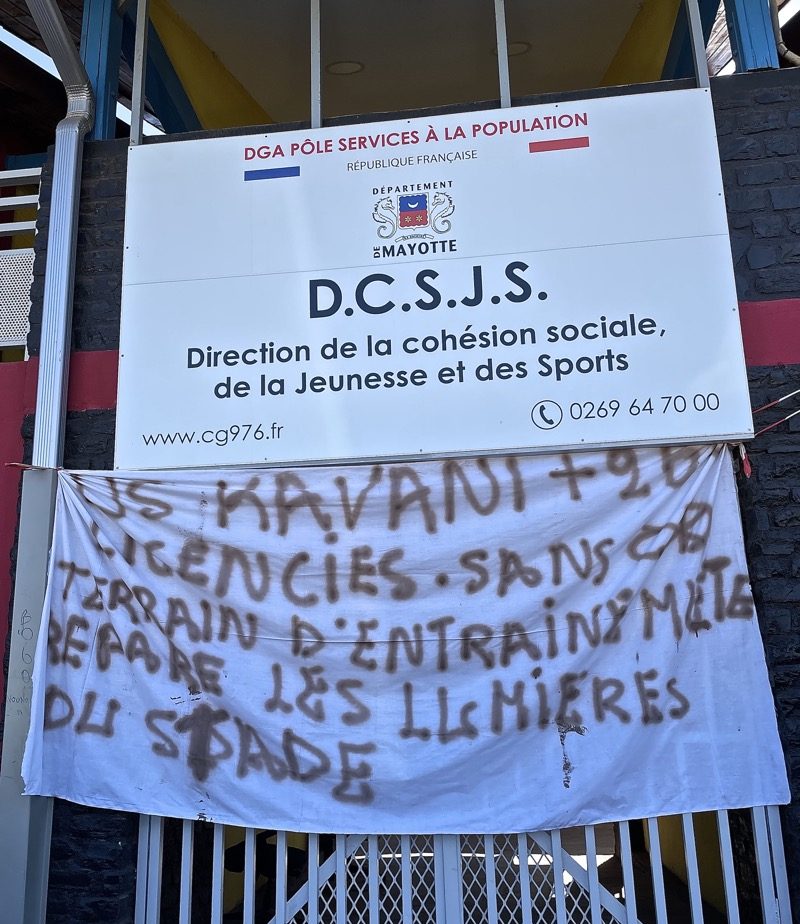 DGA PÔLE SERVICES À LA POPULATION
RÉPUBLIQUE FRANÇAISE
DÉPARTEMENT
DE MAYOTTE
D.C.S.J.S.
Direction de la cohésion sociale,
de la Jeunesse et des Sports
www.cg976.fr
0269 64 70 00
US KAVANI +20
LICENCIES. SANS
TERRAIN D'ENTRAINEMETE
REPARE LES LUMIÈRES
DU STADE